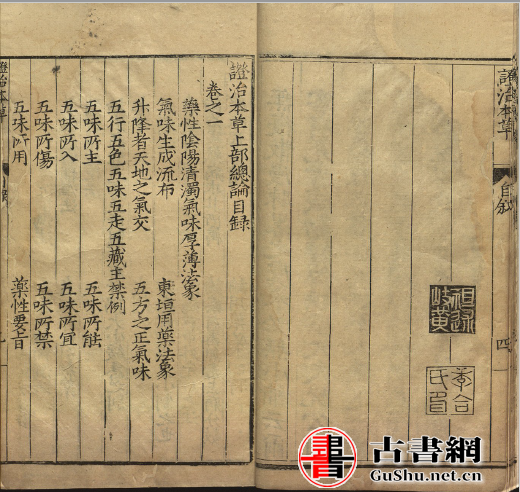 證治本草
自敘
四
證治本草上部總論目錄
卷之一
藥性陰陽清濁氣味厚薄法象
氣味生成流布
東垣用藥法象
升降者天地之氣交
五方之正氣味
五行五色五味五走五藏主禁例
五味所主
五味所能
五味所入
五味所宜
五味所傷
五味所禁
五味所用
藥性要旨
證治本草
目錄
古書網
GuShu.net.cn